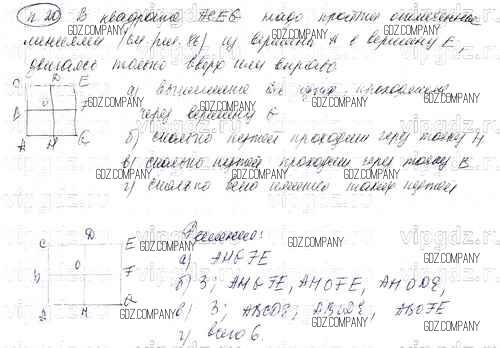 п. 20) В квадрате ACEG надо пройти отмеченным
линиям (см. рис. 46) из вершины A в вершину E,
двигаясь только вверх или вправо.
а) выпишите все пути, проходящие
через вершину G
б) сколько путей проходит через точку H
в) сколько путей проходит через точку B
г) сколько всего имеется таких путей
C D E
B O F
A H G
Решение:
C D E
B O F
A H G
а) AHGFE
б) 3; AHGFE, AHOFE, AHODE,
в) 3; ABCDE; ABODE, ABOFE
г) всего 6.
GDZ.COMPANY
vipgdz.ru